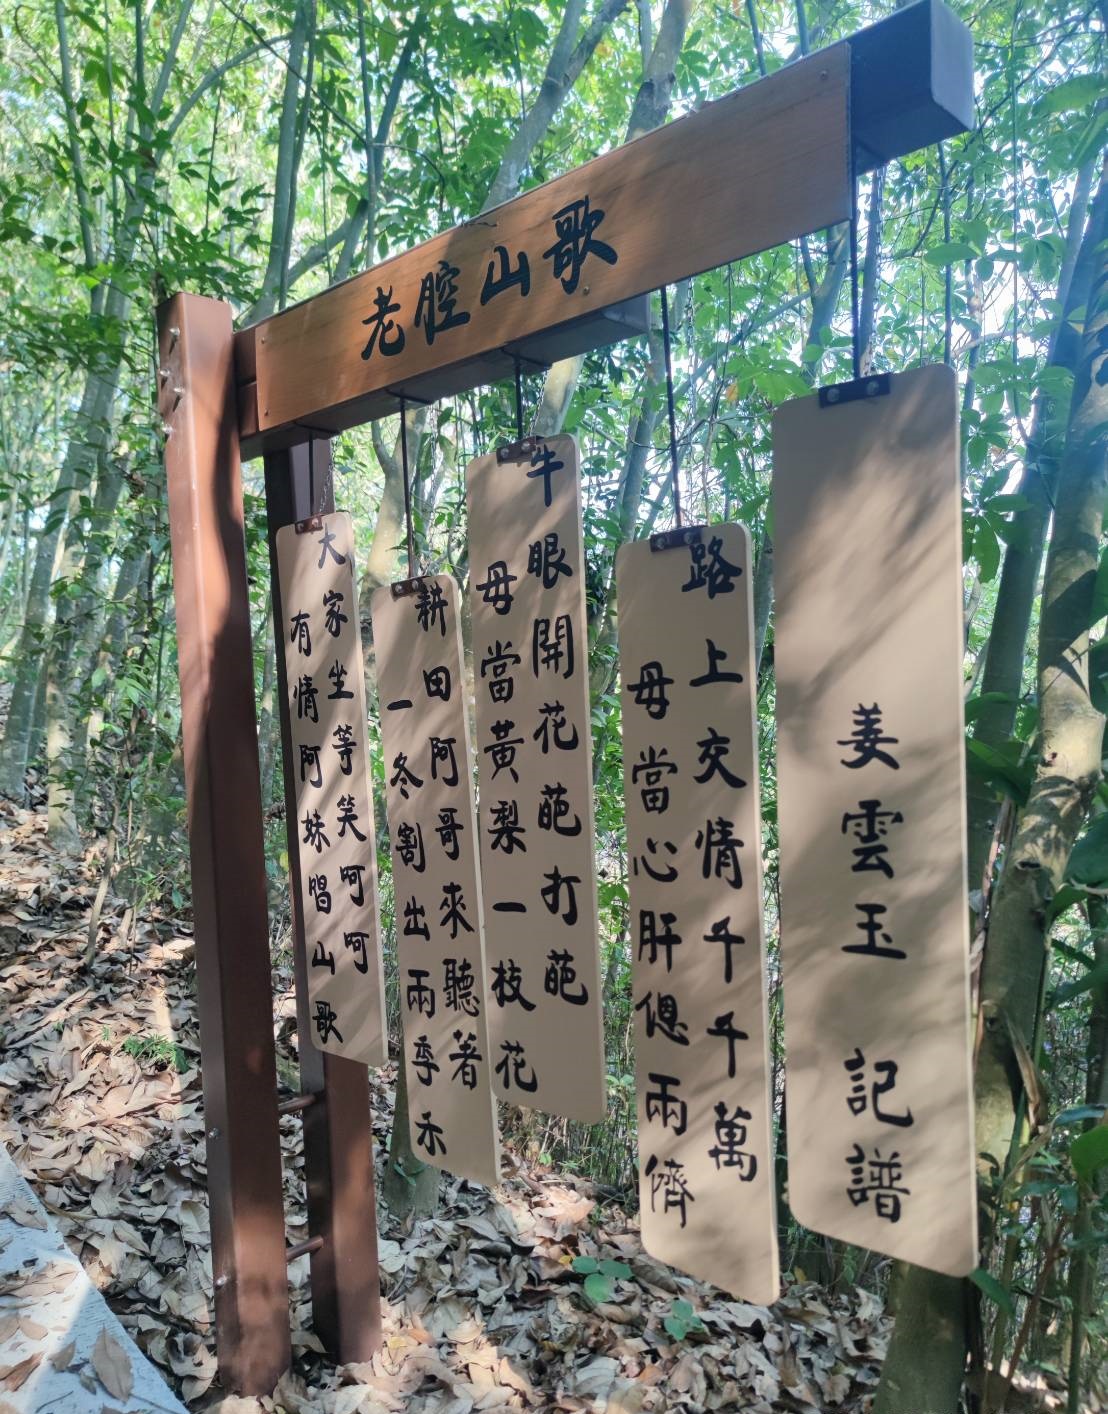 老腔山歌
大家坐等笑呵呵
有情阿妹唱山歌
耕田阿哥來聽著
一冬割出兩季禾
牛眼開花葩打葩
毋當黃梨一枝花
路上交情千千萬
毋當心肝傯兩儕
姜雲玉 記譜